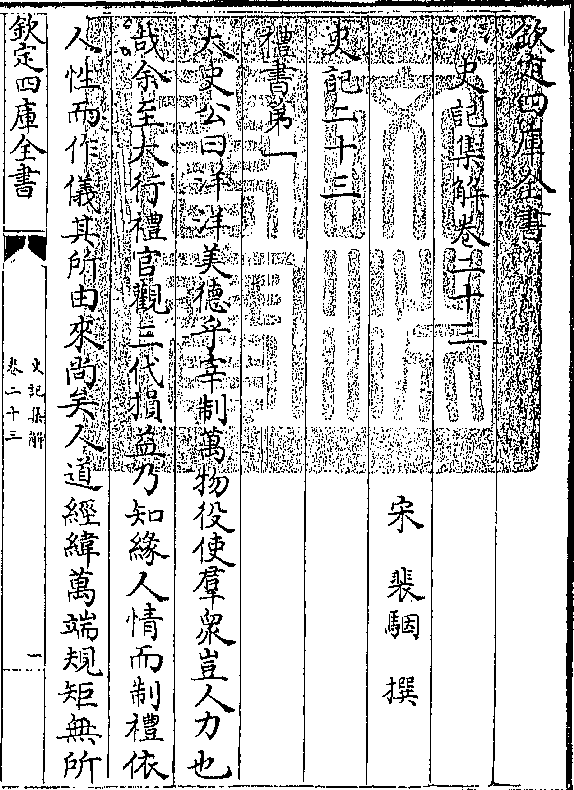 欽定四庫全書
史記集解卷二十三
宋 裴駰 撰
史記二十三
禮書第一
太史公曰洋洋美德乎宰制萬物役使羣衆豈人力也
哉余至大行禮官觀三代損益乃知緣人情而制禮依
人性而作儀其所由來尚矣人道經緯萬端規矩無所
欽定四庫全書
史記集解
卷二十三
一